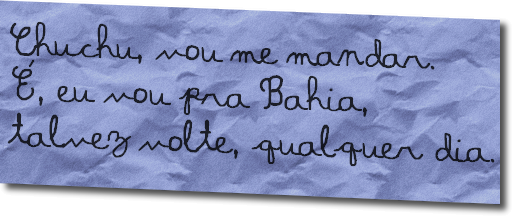 Chuchu, vou me mandar.
É, eu vou pra Bahia,
talvez volte, qualquer dia.